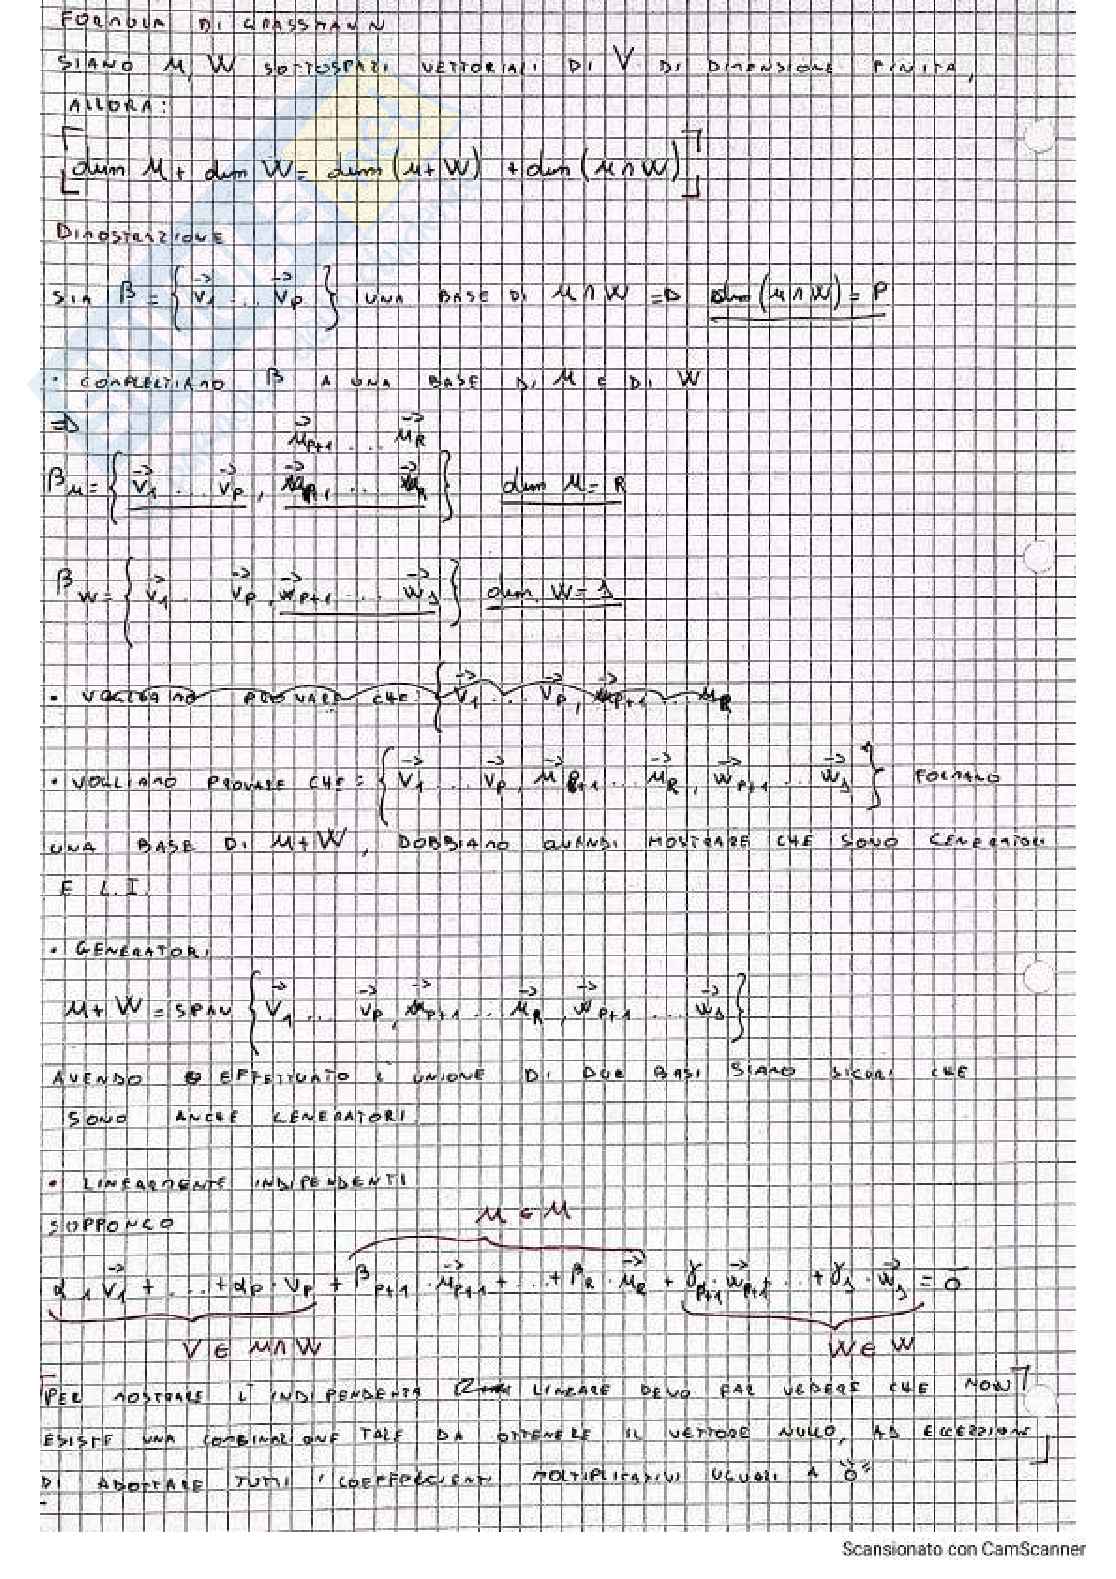 FORMULA DI GRASSMANN
SIANO U, W SOTTOSPAZI VETTORIALI DI V DI DIMENSIONE FINITA,
ALLORA:
dim U + dim W = dim (U+W) + dim (U∩W)
DIMOSTRAZIONE
SIA β = {v₁ ... vₚ} UNA BASE DI U∩W => dim (U∩W) = P
• COMPLETIAMO β A UNA BASE DI U E DI W
=>
uₚ₊₁ ... u_R
β_U = {v₁ ... vₚ, } dim U = R
β_W = {v₁ . vₚ, wₚ₊₁ ... w_s} dim W = s
• VOGLIAMO PROVARE CHE: {v₁ ... vₚ, uₚ₊₁ ... u_R
• VOGLIAMO PROVARE CHE = {v₁ ... vₚ, uₚ₊₁ ... u_R, wₚ₊₁ ... w_s} FORMANO
UNA BASE DI U+W, DOBBIAMO QUINDI MOSTRARE CHE SONO GENERATORI
E L.I.
• GENERATORI
U+W = SPAN {v₁ ... vₚ, uₚ₊₁ ... u_R, wₚ₊₁ ... w_s}
AVENDO EFFETTUATO L'UNIONE DI DUE BASI SIAMO SICURI CHE
SONO ANCHE GENERATORI.
• LINEARMENTE INDIPENDENTI
SUPPONGO
u ∈ U
α₁ v₁ + ... + αₚ · vₚ + βₚ₊₁ · uₚ₊₁ + ... + β_R · u_R + γₚ₊₁ · wₚ₊₁ ... + γ_s · w_s = 0
V ∈ U∩W W ∈ W
PER MOSTRARE L'INDIPENDENZA LINEARE DEVO FAR VEDERE CHE NON
ESISTE UNA COMBINAZIONE TALE DA OTTENERE IL VETTORE NULLO, AD ECCEZIONE
DI ADOTTARE TUTTI I COEFFICIENTI MOLTIPLICATIVI UGUALI A "0"
Scansionato con CamScanner